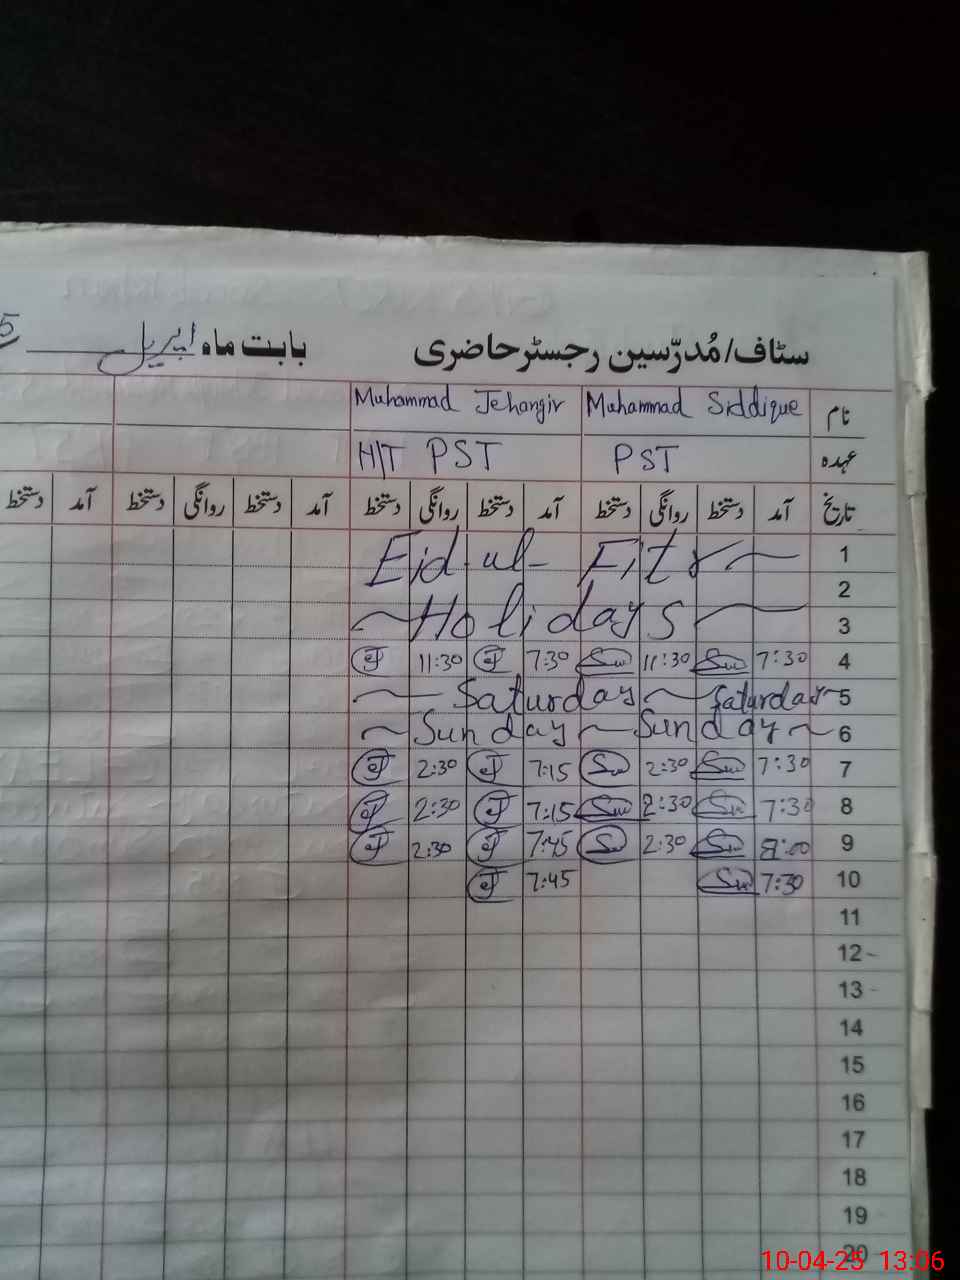 سٹاف/مُدرّسین رجسٹر حاضری بابت ماہ اپریل 5
نام Muhammad Siddique Muhammad Jehangir
عہدہ PST H/T PST
تاریخ آمد دستخط روانگی دستخط آمد دستخط روانگی دستخط آمد دستخط روانگی دستخط آمد دستخط
1 Eid-ul-Fitr
2
3 Holidays
4 7:30 11:30 7:30 11:30
5 Saturday Saturday
6 Sunday Sunday
7 7:30 2:30 7:15 2:30
8 7:30 2:30 7:15 2:30
9 8:00 2:30 7:45 2:30
10 7:30 7:45
11
12
13
14
15
16
17
18
19
20
10-04-25 13:06